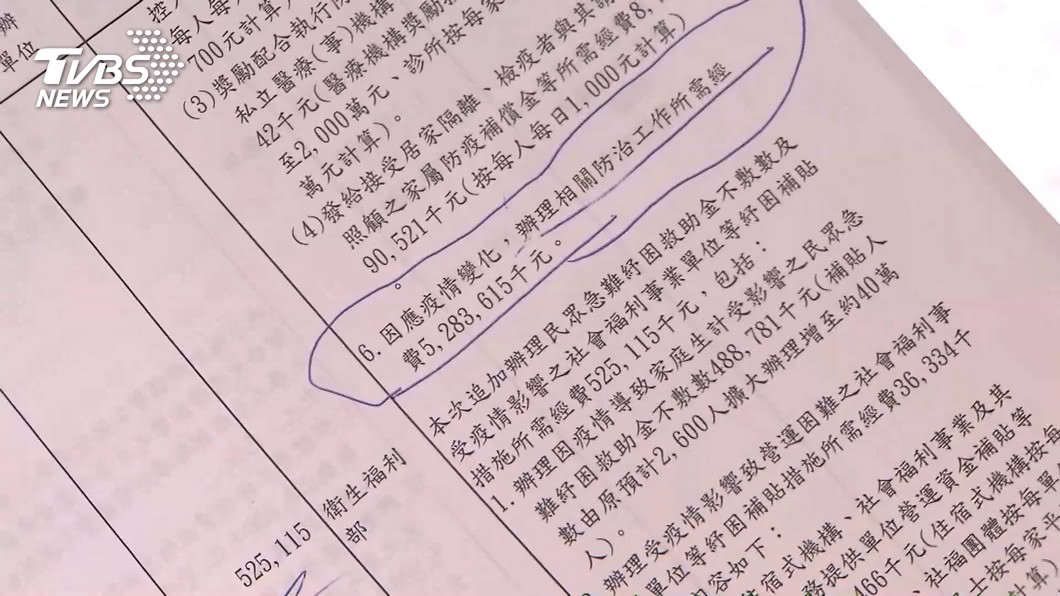 TVBS
NEWS
辦
單位
700元計算
(3)獎勵配合執行
私立醫療(事)機構
42千元(醫療機構獎勵
至2,000萬元、診所按每家
萬元計算)。
(4)發給接受居家隔離、檢疫者與其
照顧之家屬防疫補償金等所需經費8,
90,521千元(按每人每日1,000元計算)
。
6.因應疫情變化，辦理相關防治工作所需經
費5,283,615千元。
本次追加辦理民眾急難紓困救助金不敷數及
受疫情影響之社會福利事業單位等紓困補貼
措施所需經費525,115千元，包括：
1.辦理因疫情導致家庭生計受影響之民眾急
難紓困救助金不敷數488,781千元(補貼人
數由原預計2,600人擴大辦理增至約40萬
人)。
辦理受疫情影響致營運困難之社會福利事
單位等紓困補貼措施所需經費36,334千
容如下：
宿式機構、社會福利事業及其
務提供單位營運資金補貼等
466千元(住宿式機構按每
、社福團體按每單
士按每家
計算)
525,115
衛生福利
部